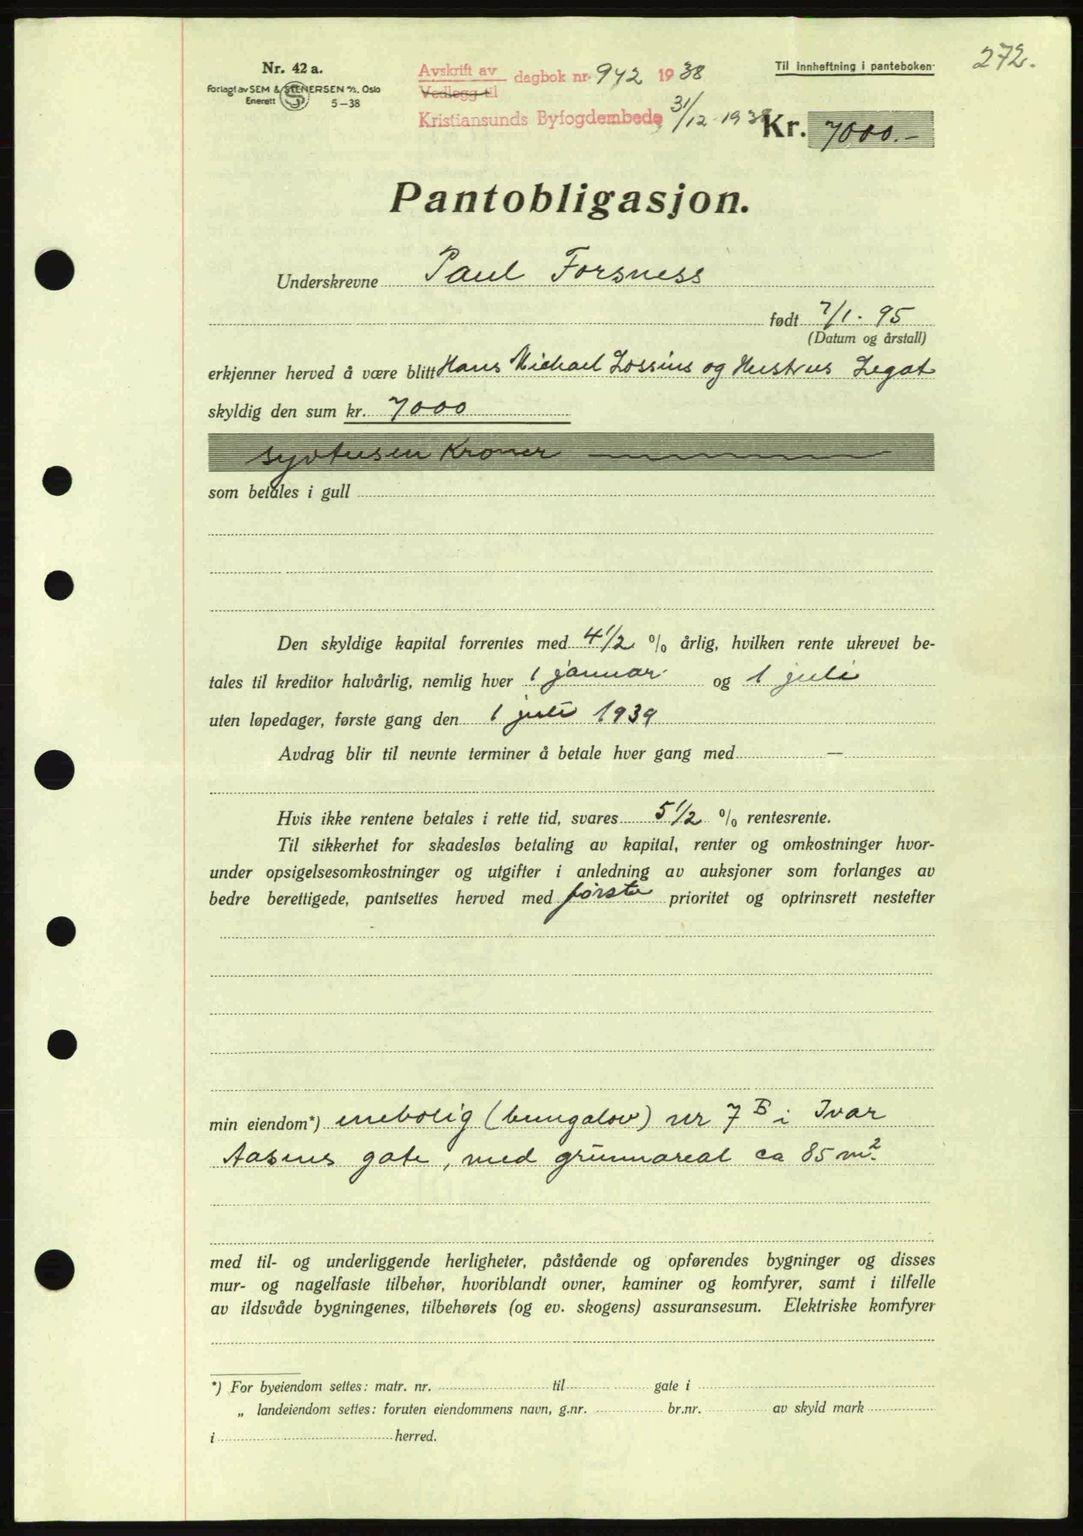 272.
Nr. 42 a.
Forlagt av SEM & STENERSEN A/S. Oslo
Enerett 5–38
Avskrift av dagbok nr. 942 1938
Vedlegg til
Kristiansunds Byfogdembede 31/12-1938
Til innheftning i panteboken
Kr. 7000.-
Pantobligasjon.
Underskrevne Paul Forsness
født 7/1-95
(Datum og årstall)
erkjenner herved å være blitt Hans Michael Lossius og Hustrus Legat
skyldig den sum kr. 7000
syvtusen Kroner
som betales i gull
Den skyldige kapital forrentes med 4 1/2 % årlig, hvilken rente ukrevet be-
tales til kreditor halvårlig, nemlig hver 1 januar og 1 juli
uten løpedager, første gang den 1 juli 1939
Avdrag blir til nevnte terminer å betale hver gang med —
Hvis ikke rentene betales i rette tid, svares 5 1/2 % rentesrente.
Til sikkerhet for skadesløs betaling av kapital, renter og omkostninger hvor-
under opsigelsesomkostninger og utgifter i anledning av auksjoner som forlanges av
bedre berettigede, pantsettes herved med første prioritet og optrinsrett nestefter
min eiendom*) enebolig (bungalov) nr 7 B i Ivar
Aasens gate, med grunnareal ca 85 m².
med til- og underliggende herligheter, påstående og opførendes bygninger og disses
mur- og nagelfaste tilbehør, hvoriblandt ovner, kaminer og komfyrer, samt i tilfelle
av ildsvåde bygningenes, tilbehørets (og ev. skogens) assuransesum. Elektriske komfyrer
*) For byeiendom settes: matr. nr. til gate i
„ landeiendom settes: foruten eiendommens navn, g.nr. br.nr. av skyld mark
i herred.